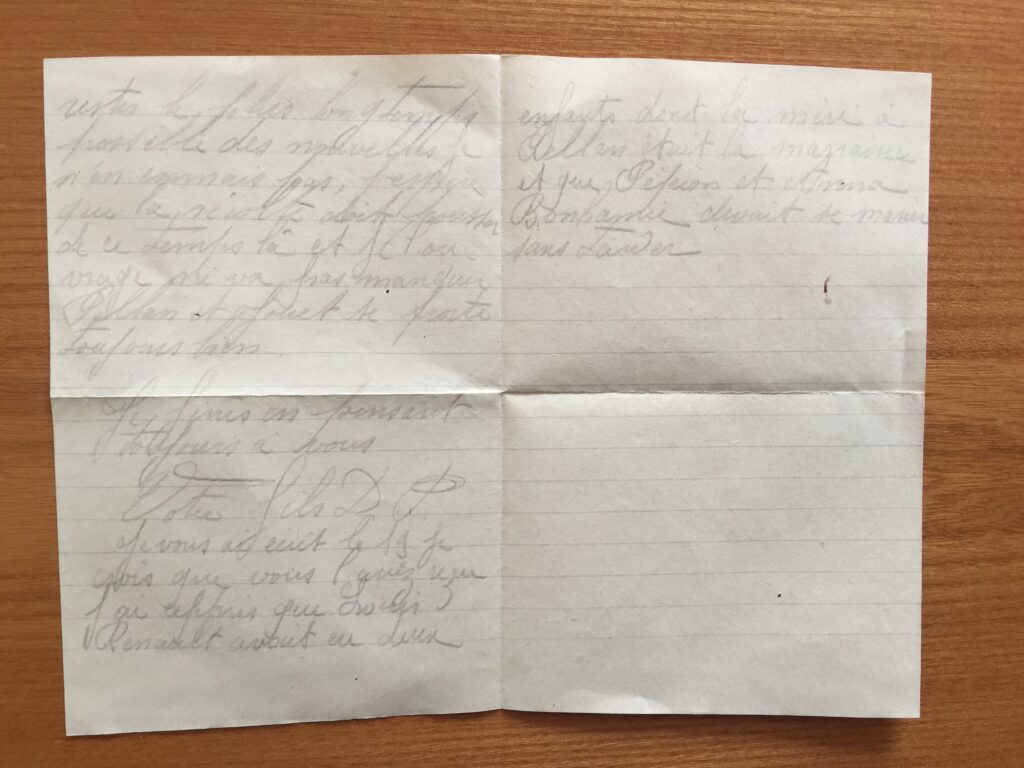 rester le plus longtemps
possible des nouvelles je
n'en connais pas, j'espère
que la récolte doit pousser
de ce temps là et que l'ou
vrage ne va pas manquer
et se porte
toujours bien
Je finis en pensant
toujours à vous
Votre fils D. P.
Je vous ai écrit le 19 je
crois que vous l'avez reçu
J'ai appris que Louis
Renault avait eu deux
enfants dont la mère à
était la marraine
et que et Anna
Bonhamie devait se marier
sans tarder